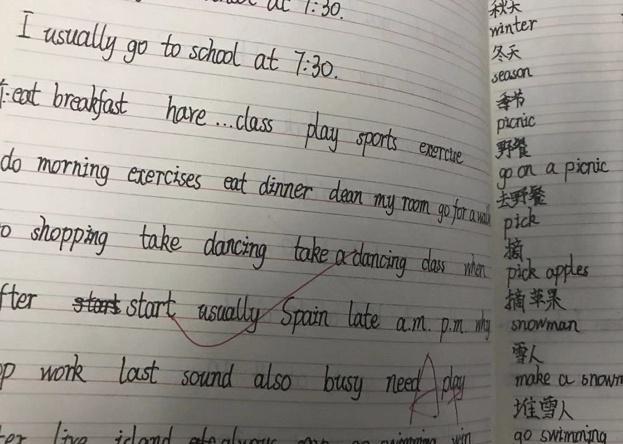 at 7:30.
I usually go to school at 7:30.
eat breakfast have...class play sports exercise
do morning exercises eat dinner clean my room go for a walk
shopping take dancing take a dancing class when
start start usually Spain late a.m. p.m. why
work last sound also busy need play
live island
秋天
winter
冬天
season
季节
picnic
野餐
go on a picnic
去野餐
pick
摘
pick apples
摘苹果
snowman
雪人
make a snowm
堆雪人
go swimming